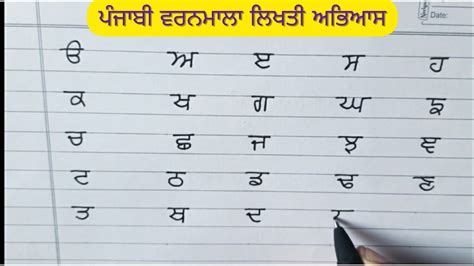 ਪੰਜਾਬੀ ਵਰਨਮਾਲਾ ਲਿਖਤੀ ਅਭਿਆਸ
Date:
ੳ ਅ ੲ ਸ ਹ
ਕ ਖ ਗ ਘ ਙ
ਚ ਛ ਜ ਝ ਞ
ਟ ਠ ਡ ਢ ਣ
ਤ ਥ ਦ